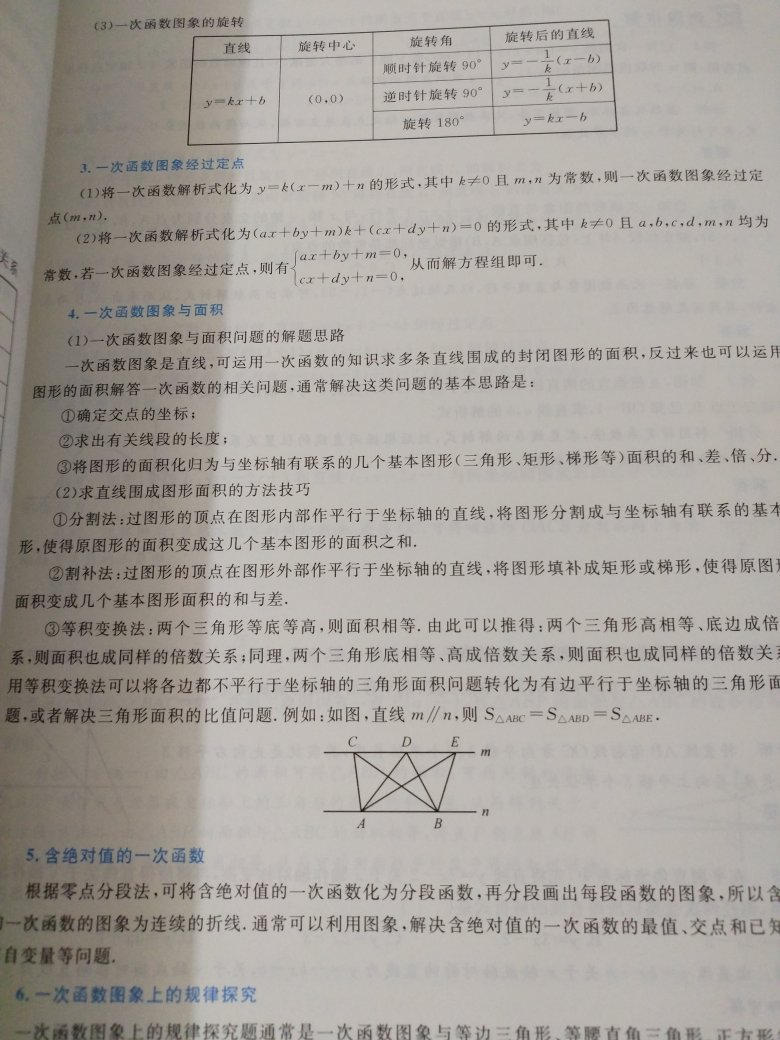 (3)一次函数图象的旋转
直线 旋转中心 旋转角 旋转后的直线
y=kx+b (0,0) 顺时针旋转 90° y=-1/k(x-b)
逆时针旋转 90° y=-1/k(x+b)
旋转 180° y=kx-b
3. 一次函数图象经过定点
(1)将一次函数解析式化为 y=k(x-m)+n 的形式,其中 k≠0 且 m,n 为常数,则一次函数图象经过定
点(m,n).
(2)将一次函数解析式化为(ax+by+m)k+(cx+dy+n)=0 的形式,其中 k≠0 且 a,b,c,d,m,n 均为
常数,若一次函数图象经过定点,则有{ax+by+m=0, cx+dy+n=0, 从而解方程组即可.
4. 一次函数图象与面积
(1)一次函数图象与面积问题的解题思路
一次函数图象是直线,可运用一次函数的知识求多条直线围成的封闭图形的面积,反过来也可以运用
图形的面积解答一次函数的相关问题,通常解决这类问题的基本思路是:
①确定交点的坐标;
②求出有关线段的长度;
③将图形的面积化归为与坐标轴有联系的几个基本图形(三角形、矩形、梯形等)面积的和、差、倍、分.
(2)求直线围成图形面积的方法技巧
①分割法:过图形的顶点在图形内部作平行于坐标轴的直线,将图形分割成与坐标轴有联系的基本
形,使得原图形的面积变成这几个基本图形的面积之和.
②割补法:过图形的顶点在图形外部作平行于坐标轴的直线,将图形填补成矩形或梯形,使得原图形
面积变成几个基本图形面积的和与差.
③等积变换法:两个三角形等底等高,则面积相等. 由此可以推得:两个三角形高相等、底边成倍
系,则面积也成同样的倍数关系;同理,两个三角形底相等、高成倍数关系,则面积也成同样的倍数关系
用等积变换法可以将各边都不平行于坐标轴的三角形面积问题转化为有边平行于坐标轴的三角形面
题,或者解决三角形面积的比值问题. 例如:如图,直线 m∥n,则 S△ABC=S△ABD=S△ABE.
C D E m
A B n
5. 含绝对值的一次函数
根据零点分段法,可将含绝对值的一次函数化为分段函数,再分段画出每段函数的图象,所以含
一次函数的图象为连续的折线. 通常可以利用图象,解决含绝对值的一次函数的最值、交点和已知
自变量等问题.
6. 一次函数图象上的规律探究
一次函数图象上的规律探究题通常是一次函数图象与等边三角形、等腰直角三角形、正方形